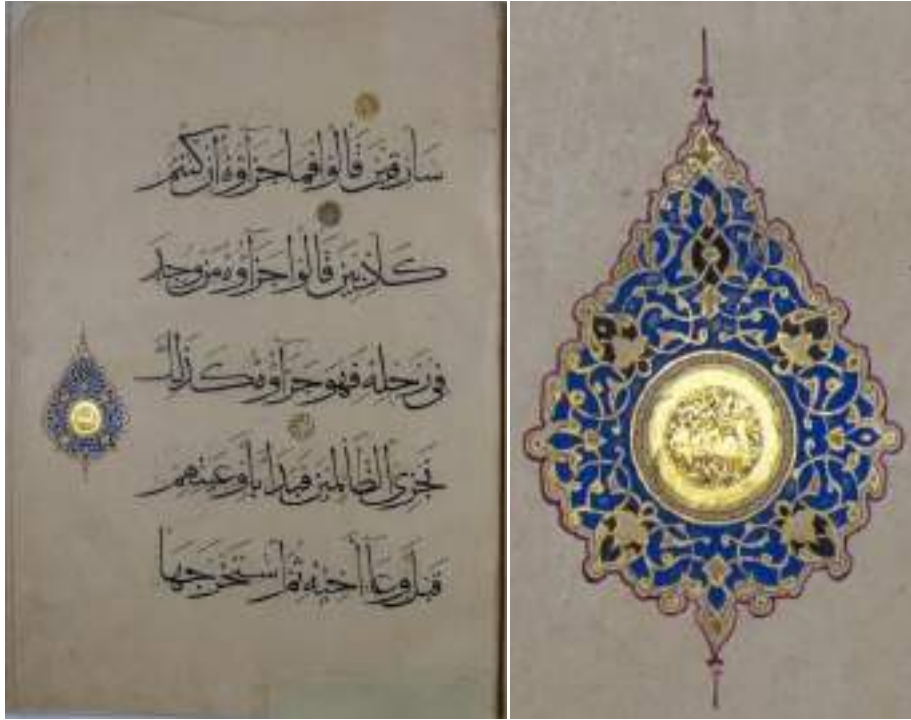 سارقين قالوا فما جزاؤه ان كنتم
كاذبين قالوا جزاؤه من وجد
في رحله فهو جزاؤه كذلك
نجزي الظالمين فبدأ بأوعيتهم
قبل وعاء أخيه ثم استخرجها